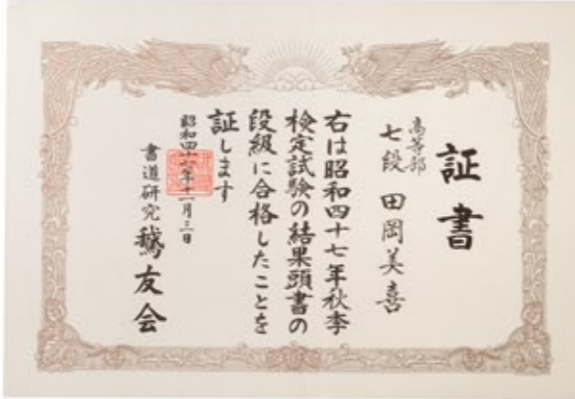 証書
高等部
七段 田岡美喜
右は昭和四十七年秋季
検定試験の結果頭書の
段級に合格したことを
証します
昭和四十七年十一月三日
書道研究 鵞友会